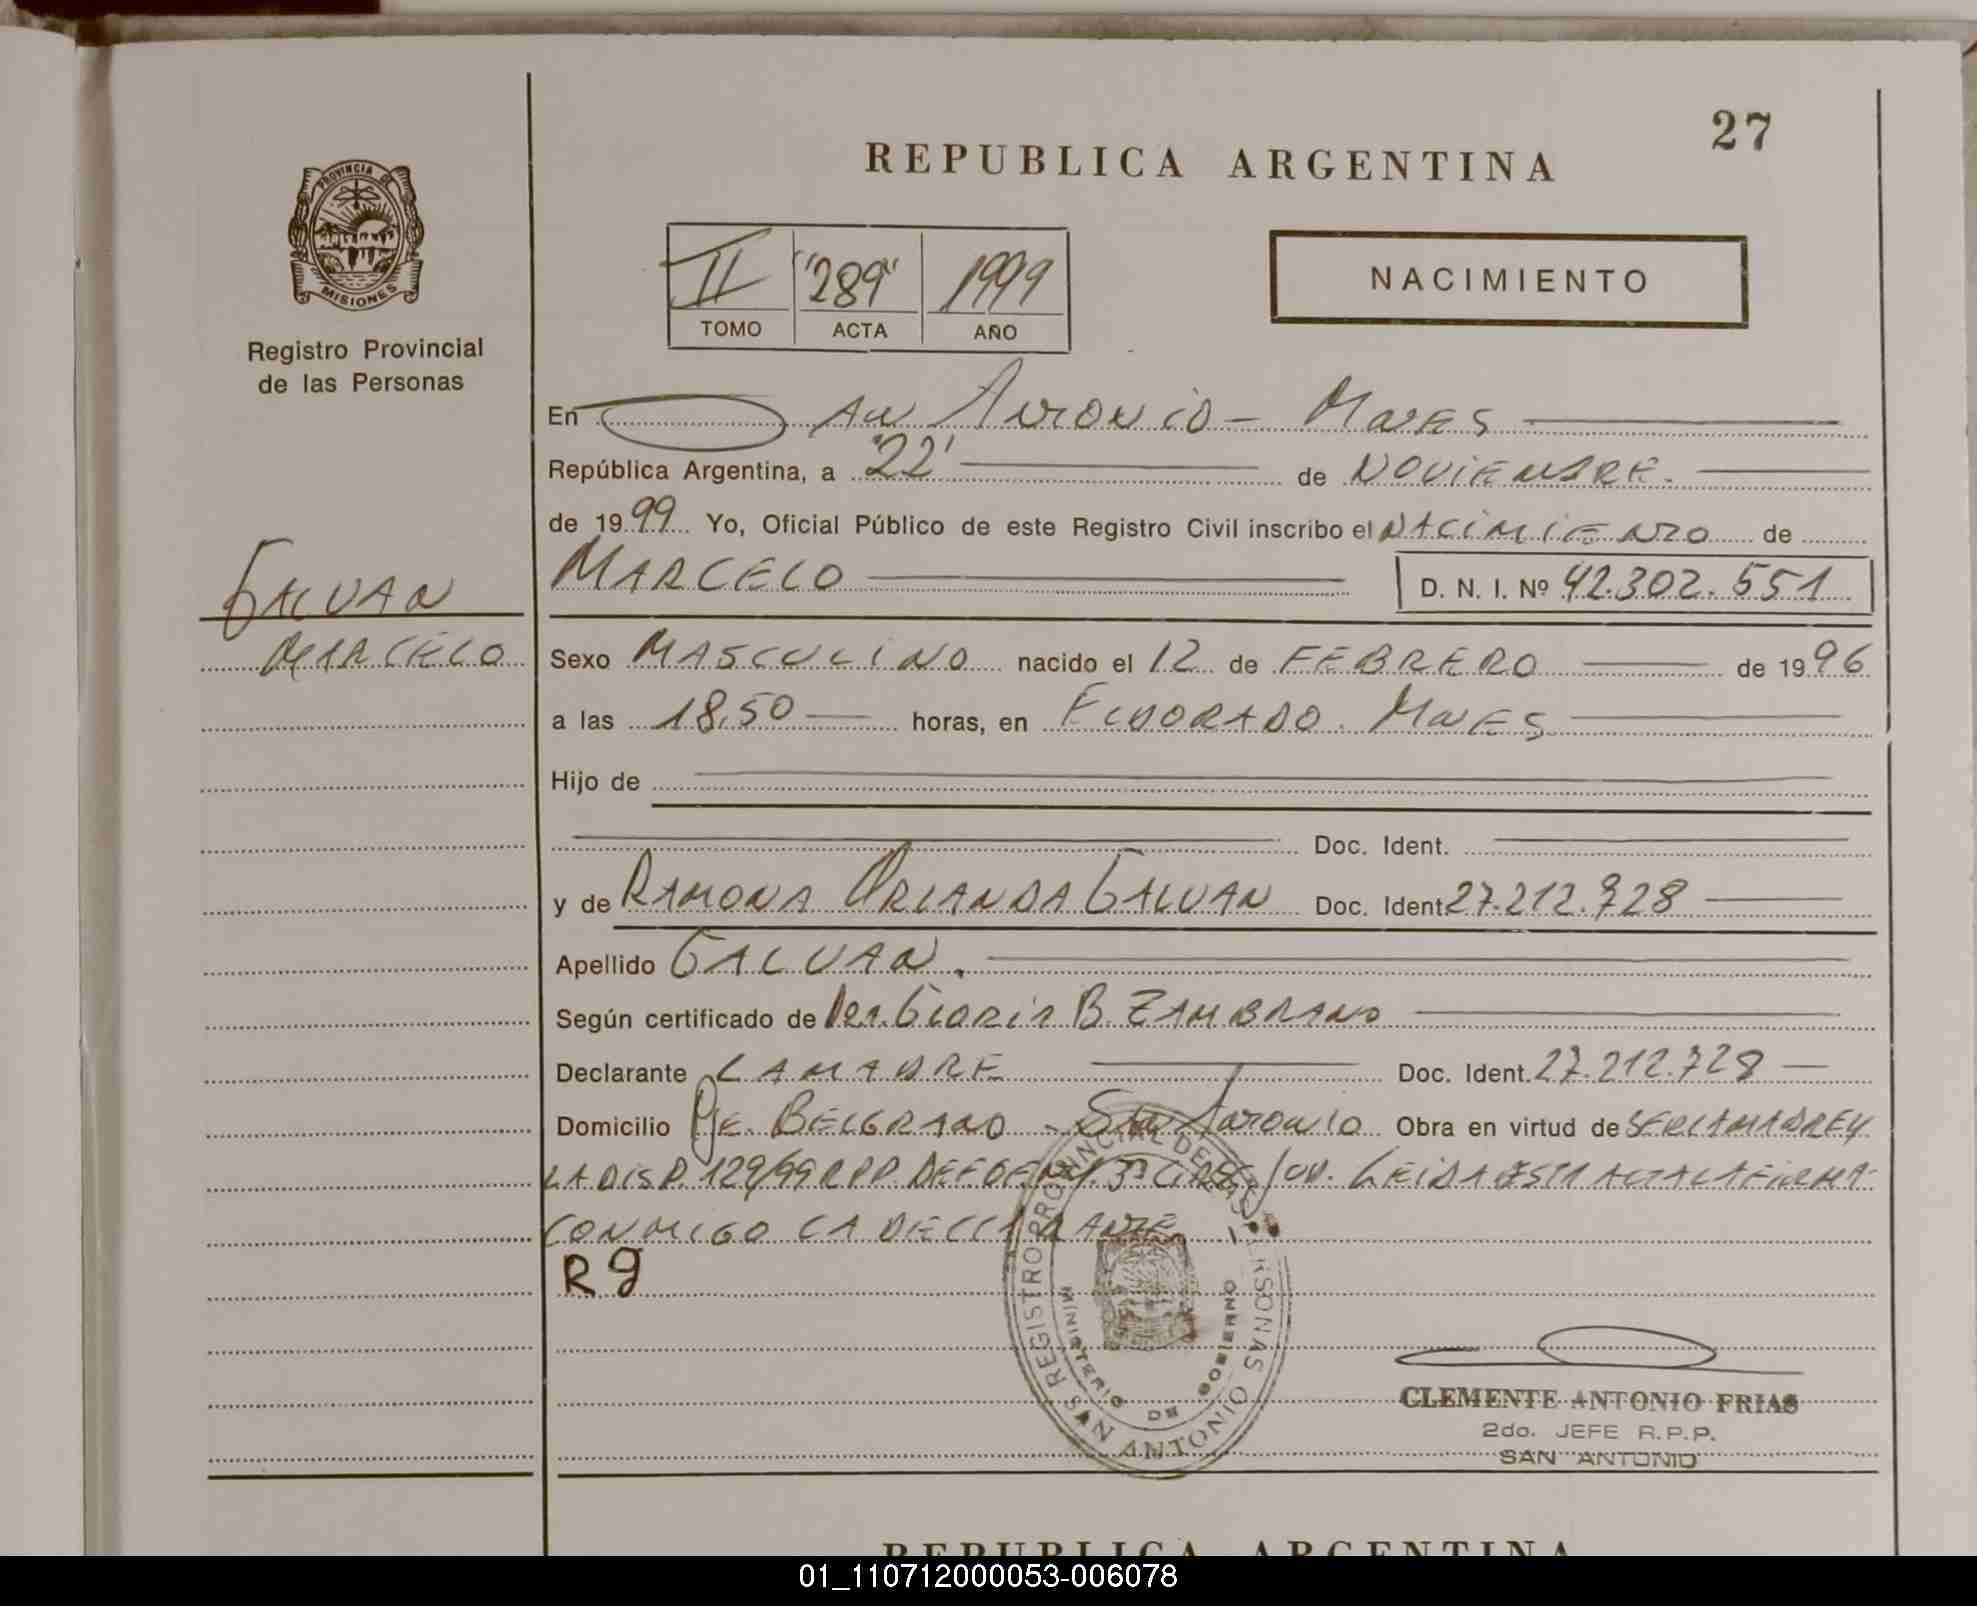 27
REPUBLICA ARGENTINA
PROVINCIA DE MISIONES
Registro Provincial
de las Personas
II "289" 1999
TOMO ACTA AÑO
NACIMIENTO
En San Antonio - Mnes
República Argentina, a "22" de NOVIEMBRE.
de 1999 Yo, Oficial Público de este Registro Civil inscribo el NACIMIENTO de
MARCELO D. N. I. Nº 42.302.551
GALVAN
MARCELO
Sexo MASCULINO nacido el 12 de FEBRERO de 1996
a las 18,50 horas, en ELDORADO. MNES
Hijo de
Doc. Ident.
y de RAMONA ORLANDA GALVAN Doc. Ident. 27.212.728
Apellido GALVAN.
Según certificado de Dra. Gloria B. ZAMBRANO
Declarante LA MADRE Doc. Ident. 27.212.728
Domicilio Pje. BELGRANO - San Antonio Obra en virtud de SER LA MADRE Y
LA DISP. 129/99 RPP. DEF OF. 3ª CIRC. JUD. LEIDA ESTA ACTA LA FIRMA
CONMIGO LA DECLARANTE
R g
REGISTRO PROVINCIAL DE LAS PERSONAS
MINISTERIO DE GOBIERNO
SAN ANTONIO
CLEMENTE ANTONIO FRIAS
2do. JEFE R.P.P.
SAN ANTONIO
REPUBLICA ARGENTINA
01_110712000053-006078